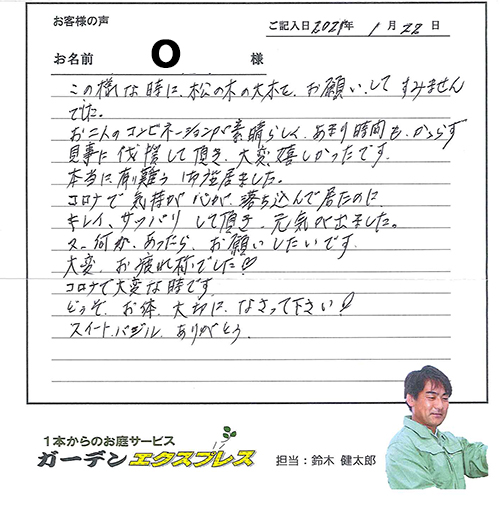 お客様の声
ご記入日 2021年 1月 22日
お名前 O 様
この様な時に、松の木の大木を、お願いして すみません
でした。
お二人のコンビネーションが素晴らしく、あまり時間も、かからず
見事に伐採して頂き、大変嬉しかったです。
本当に有難う御座居ました。
コロナで気持が心が、落ち込んで居たのに
キレイ、サッパリして頂き、元気が出ました。
又、何か、あったら、お願いしたいです。
大変、お疲れ様でした♡
コロナで大変な時です
どうぞ、お体、大切に、なさって下さい!
スイートバジル、ありがとう。
1本からのお庭サービス
ガーデンエクスプレス
担当:鈴木 健太郎